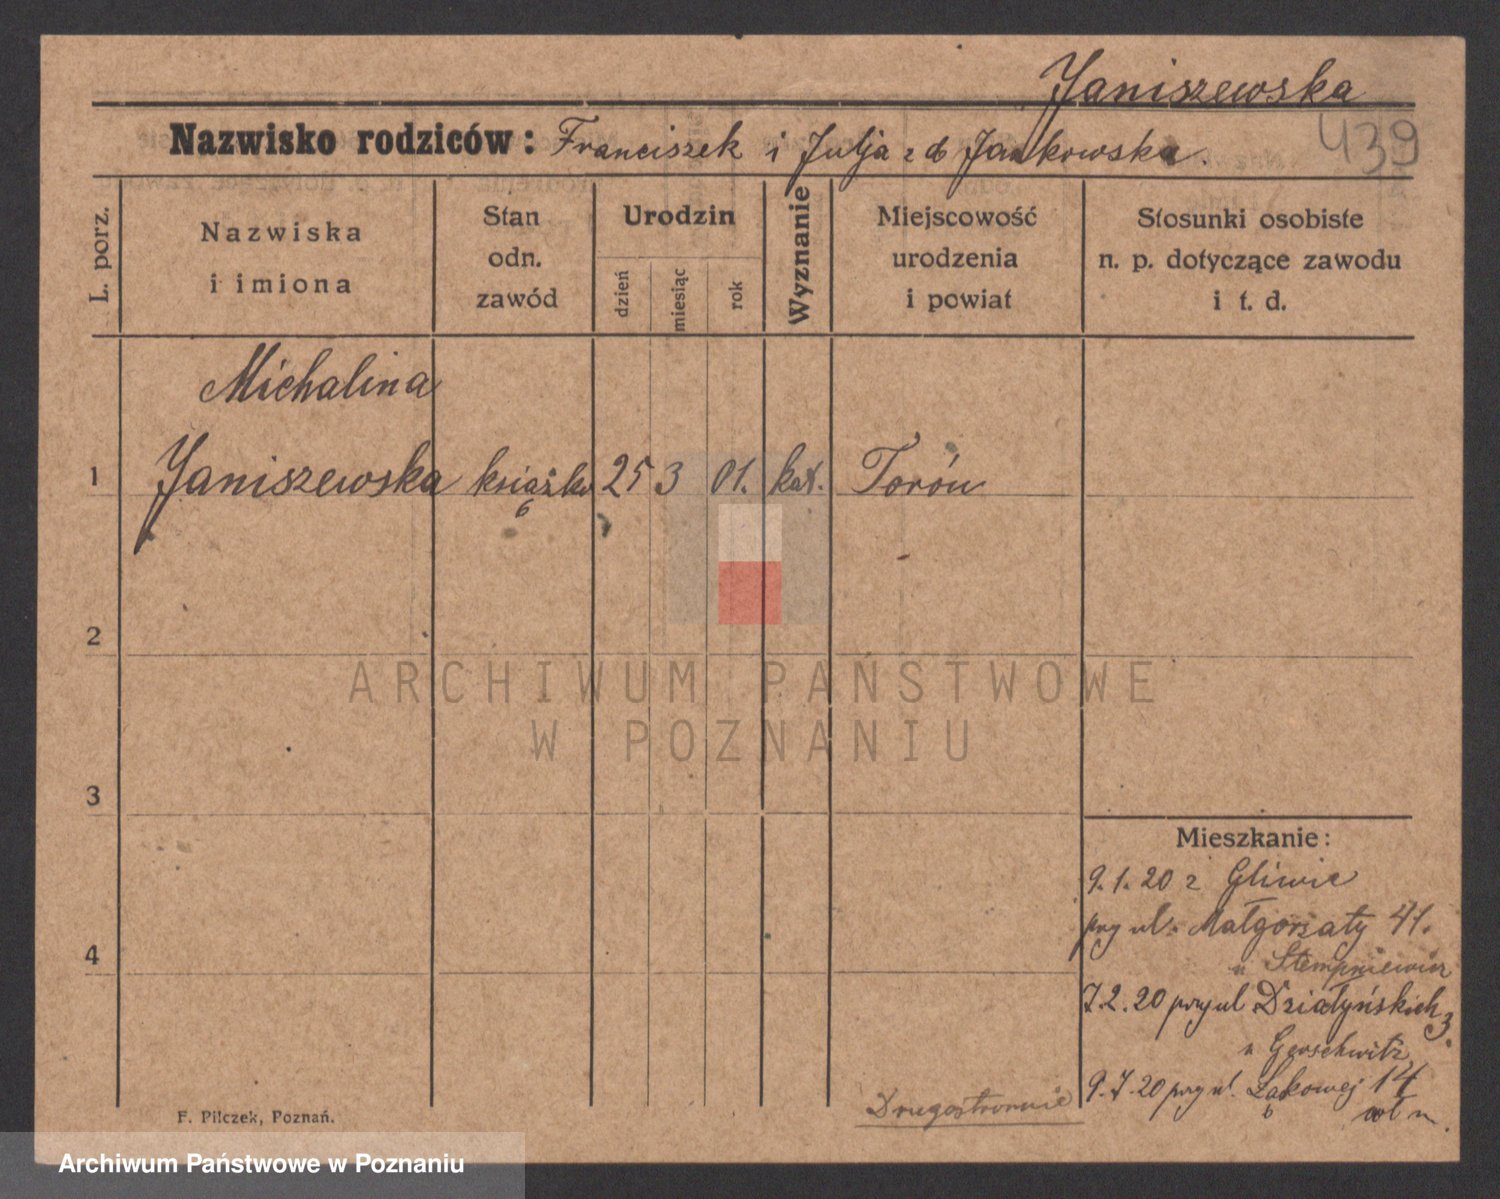 Janiszewska
439
Nazwisko rodziców: Franciszek i Julja z d Jankowska.
L. porz.
Nazwiska
i imiona
Stan
odn.
zawód
Urodzin
dzień
miesiąc
rok
Wyznanie
Miejscowość
urodzenia
i powiat
Stosunki osobiste
n. p. dotyczące zawodu
i t. d.
Michalina
1 Janiszewska książko 25 3 01. kat. Torów
2
ARCHIWUM PAŃSTWOWE
W POZNANIU
3
Mieszkanie:
9.1.20 z Gliwic
przy ul. Małgorzaty 41.
u Stempniewicz
4
7.2.20 przy ul Działyńskich 3.
u Gerschwitz
9.7.20 przy ul. Łąkowej 14
Drugostronnie
F. Pilczek, Poznań.
Archiwum Państwowe w Poznaniu